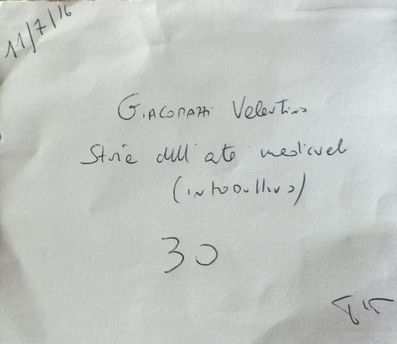 11/7/16
Giacomazzi Valentino
Storia dell'arte medievale
(introduttivo)
30